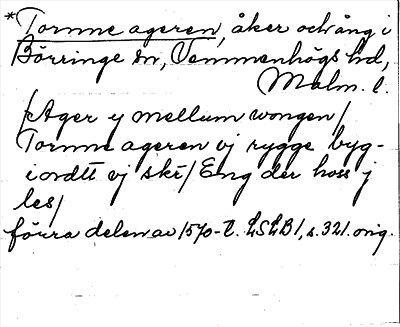 *Tornne ageren, åker och äng i
Börringe sn, Vemmenhögs hd,
Malm. l.
/Ager y mellum wongen/
Tornne ageren vj rygge byg-
iordtt vj skr/ Eng der hoss j
les/
förra delen av 1570-t. LSLB1, s. 321. orig.